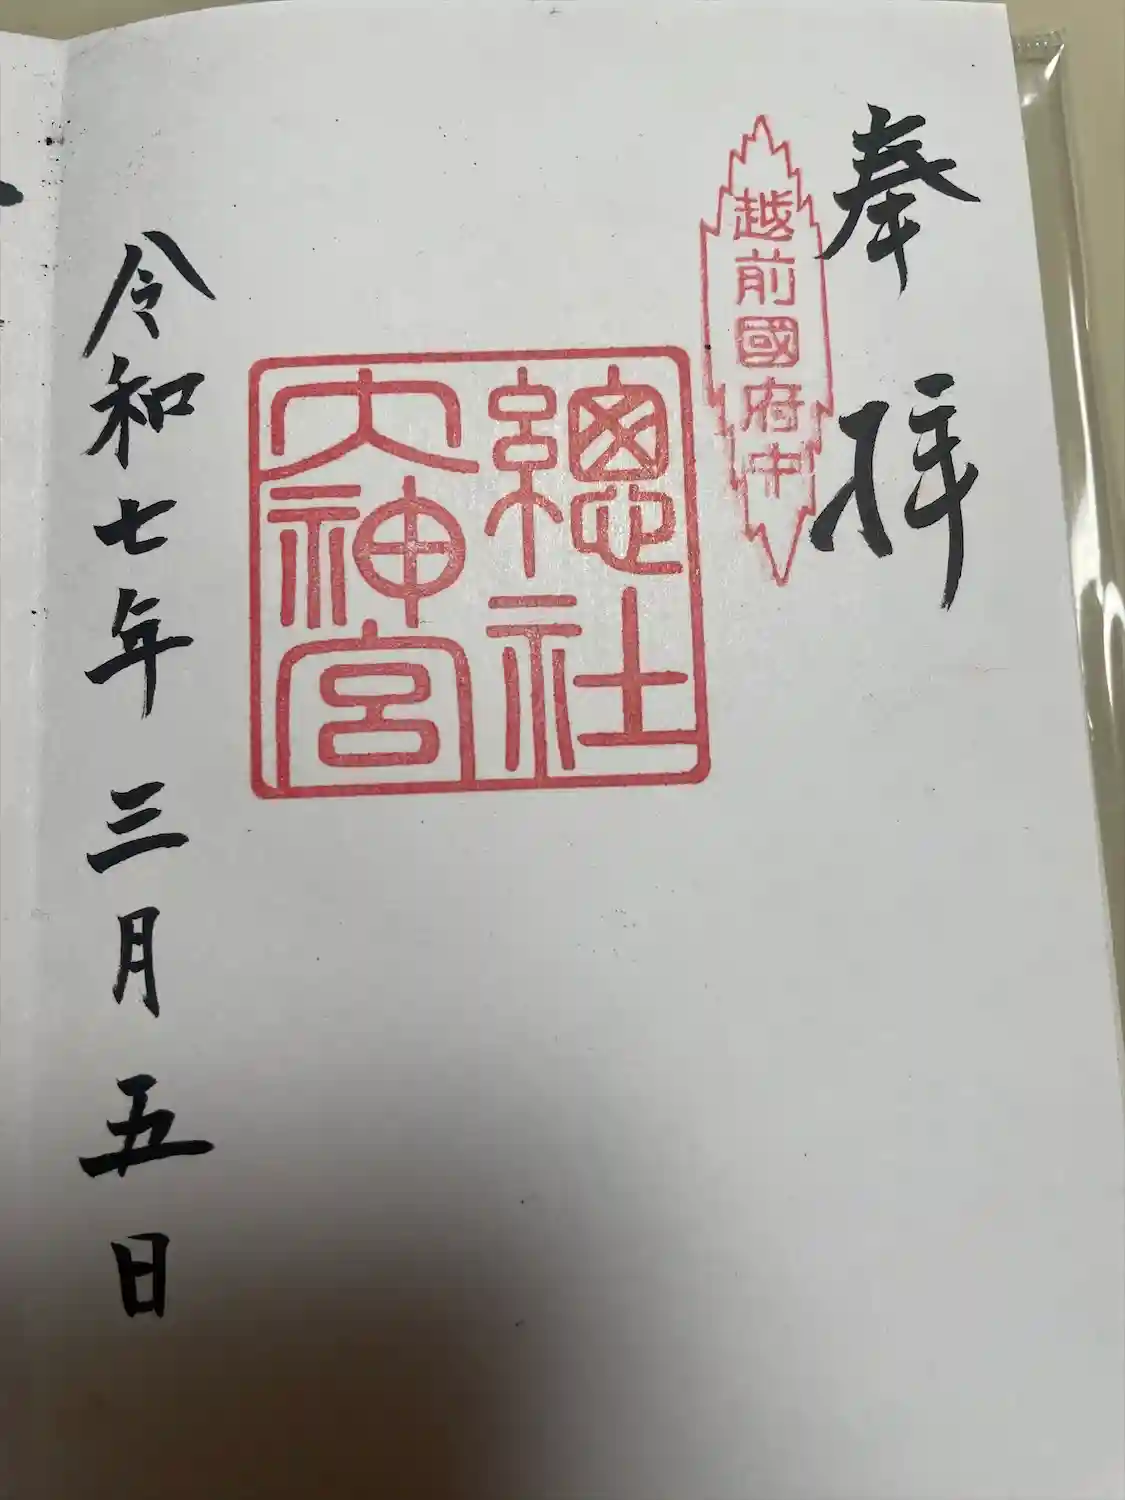 奉拝
越前國府中
總社
大神宮
令和七年三月五日